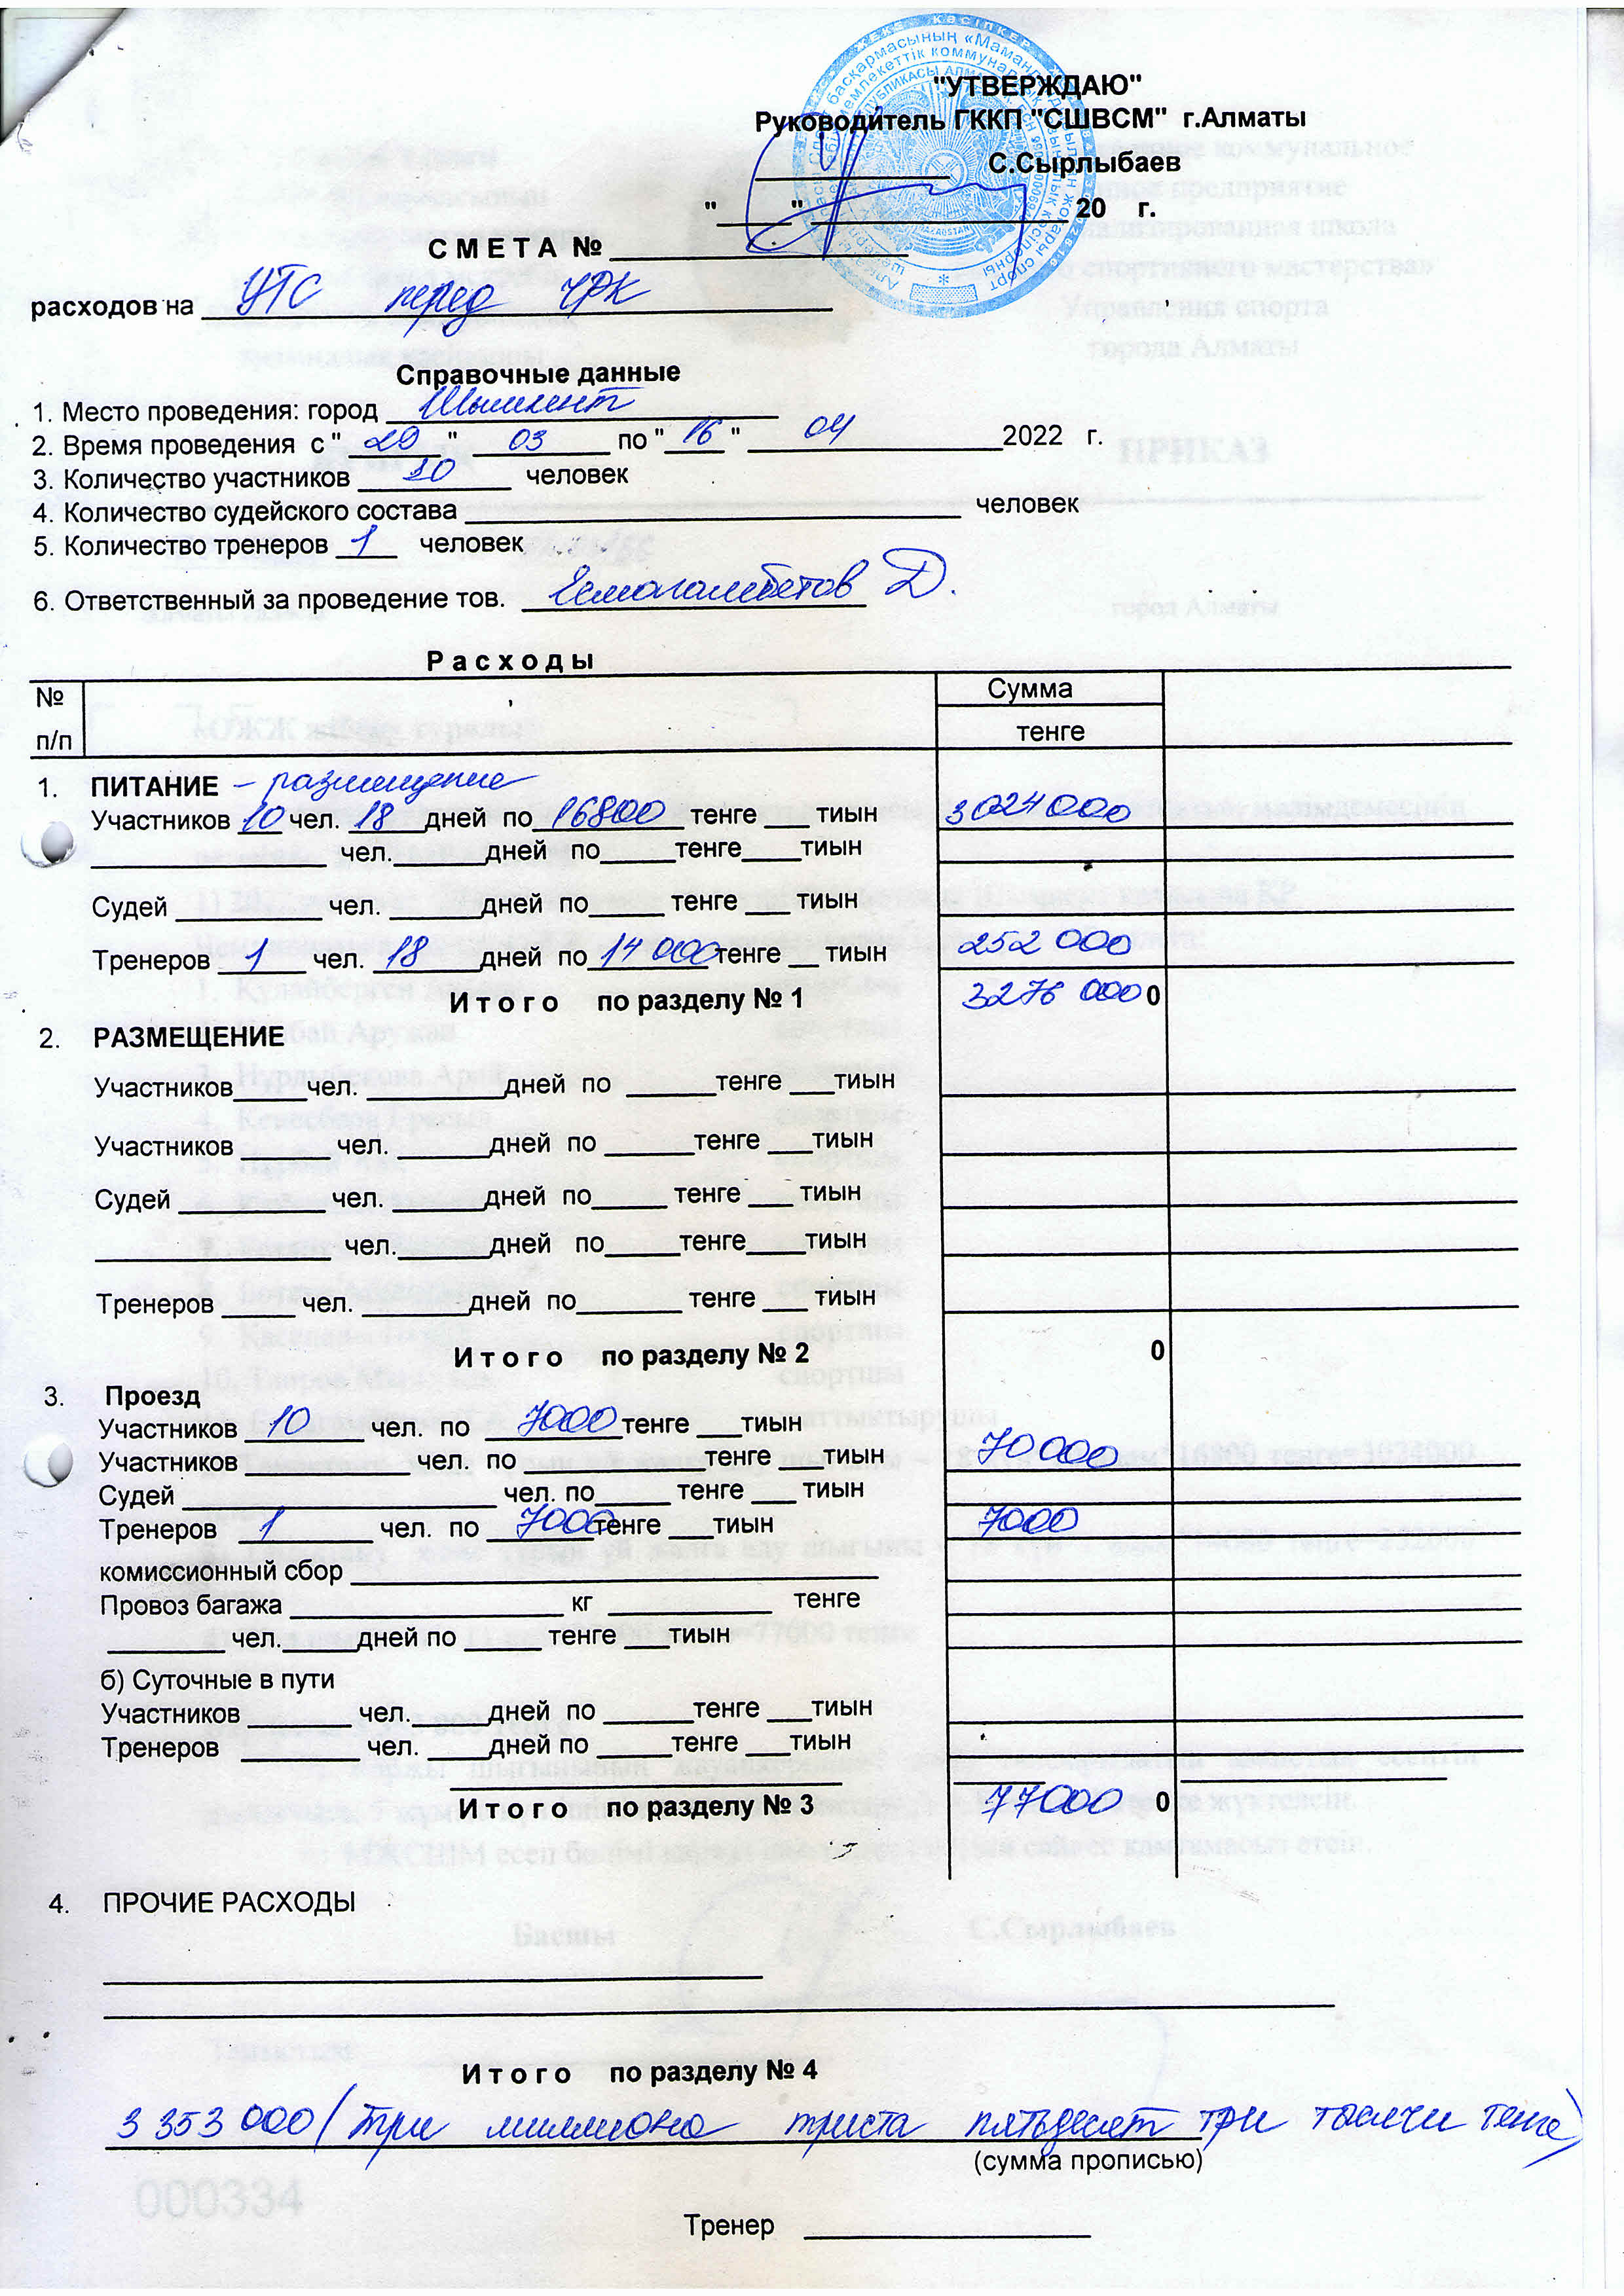 "УТВЕРЖДАЮ"
Руководитель ГККП "СШВСМ" г.Алматы
____________ С.Сырлыбаев
"_____" __________________ 20 г.
С М Е Т А № ____________________
расходов на УТС перед ЧРК
Справочные данные
1. Место проведения: город Шымкент
2. Время проведения с " 29 " 03 по " 16 " 04 2022 г.
3. Количество участников 10 человек
4. Количество судейского состава ____________________ человек
5. Количество тренеров 1 человек
6. Ответственный за проведение тов. Есмагамбетов Д.
Р а с х о д ы
№ Сумма
п/п тенге
1. ПИТАНИЕ – размещение
Участников 10 чел. 18 дней по 16800 тенге ___ тиын 3024000
________________ чел.______дней по_____тенге____тиын
Судей __________ чел. ______дней по_____ тенге ___ тиын
Тренеров 1 чел. 18 дней по 14 000 тенге __ тиын 252 000
И т о г о по разделу № 1 3276 000 0
2. РАЗМЕЩЕНИЕ
Участников_____чел. _________дней по ______тенге ___тиын
Участников ______ чел. ______дней по ______тенге ___тиын
Судей __________ чел. ______дней по_____ тенге ___тиын
________________ чел.______дней по_____тенге____тиын
Тренеров _____ чел. _______дней по_______ тенге ___ тиын
И т о г о по разделу № 2 0
3. Проезд
Участников 10 чел. по 7000 тенге ___тиын
Участников ___________ чел. по ____________тенге ___тиын 70 000
Судей _____________________ чел. по_____ тенге ___ тиын
Тренеров 1 чел. по 7000 тенге ___тиын 7000
комиссионный сбор ___________________________________
Провоз багажа __________________ кг ___________ тенге
________ чел._____дней по _____ тенге ___тиын
б) Суточные в пути
Участников _______ чел._____дней по ______тенге ___тиын
Тренеров ________ чел. ____дней по _____тенге ___тиын
И т о г о по разделу № 3 77000 0
4. ПРОЧИЕ РАСХОДЫ
И т о г о по разделу № 4
3 353 000 (три миллиона триста пятьдесят три тысячи тенге)
(сумма прописью)
000334
Тренер ___________________